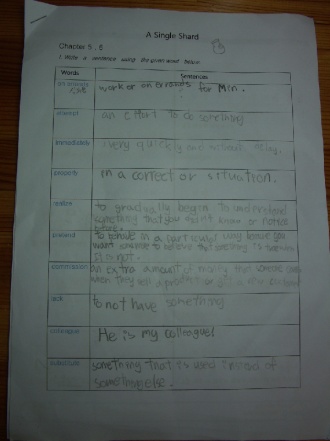 A Single Shard
Chapter 5, 6
1. Write a sentence using the given word below.
Words Sentences
work or on errands for Min.
attempt an effort to do something
immediately very quickly and without delay.
properly in a correct or situation.
realize to gradually begin to understand
something that you didn't know or notice
before.
pretend to behave in a particular way because you
want someone to believe that something is
it is not.
commission an extra amount of money that someone
when they sell a product or
lack to not have something
colleague He is my colleague!
substitute something that is used instead of
something else.